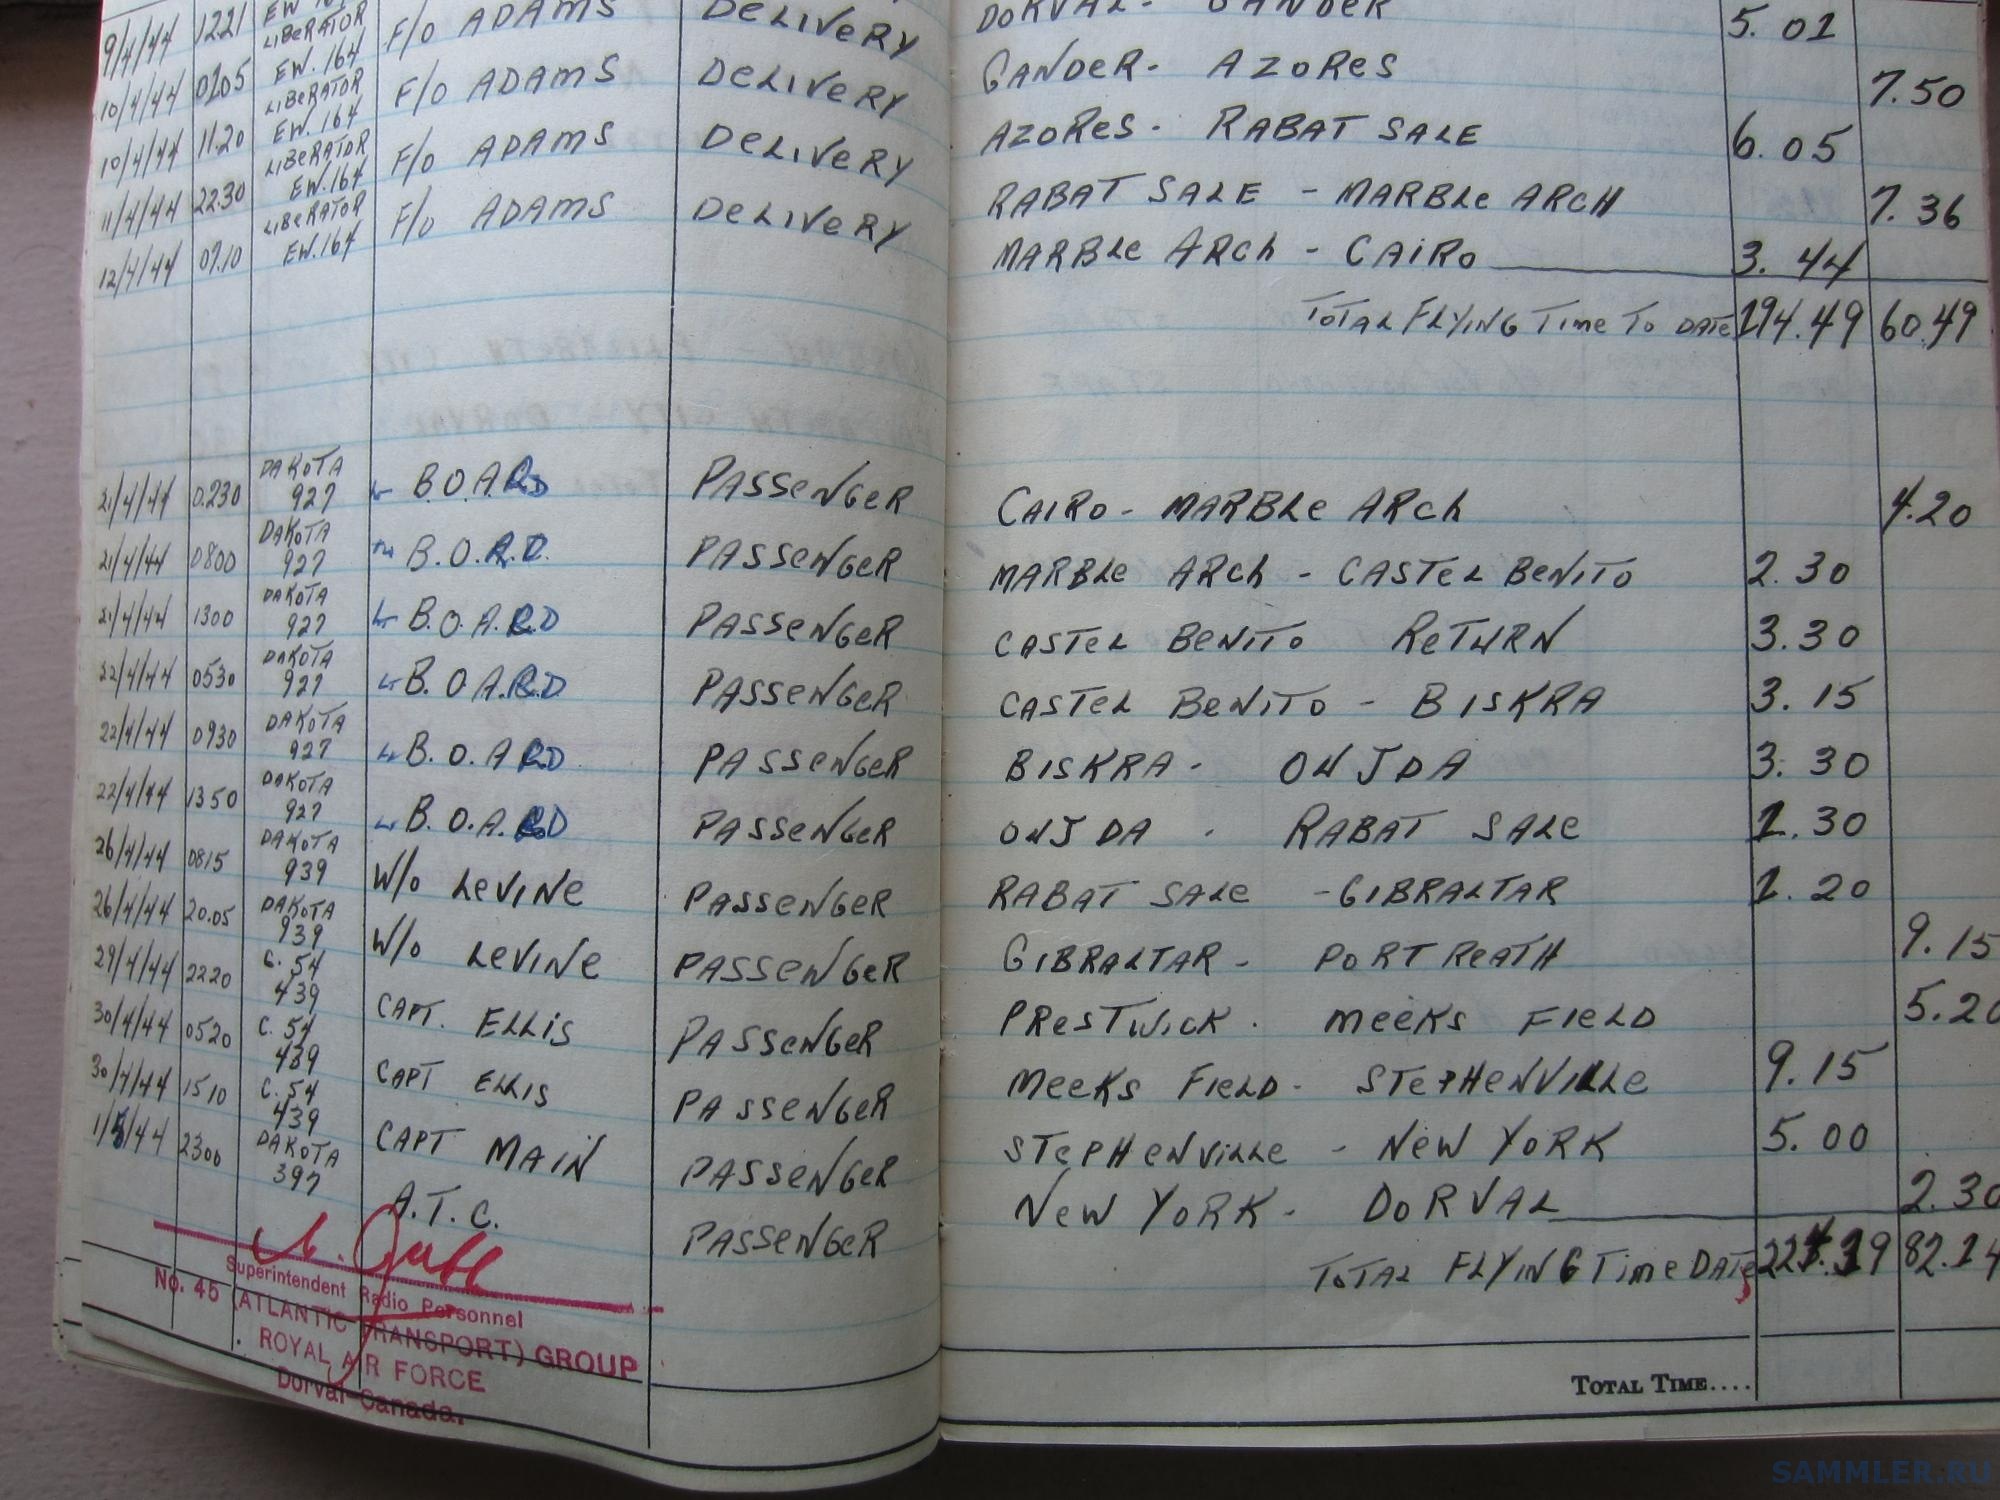 9/4/44 1221 LIBERATOR F/O ADAMS DELIVERY DORVAL - GANDER 5.01
EW.164
10/4/44 0105 LIBERATOR F/O ADAMS DELIVERY GANDER - AZORES 7.50
EW.164
10/4/44 11.20 LIBERATOR F/O ADAMS DELIVERY AZORES - RABAT SALE 6.05
EW.164
11/4/44 22.30 LIBERATOR F/O ADAMS DELIVERY RABAT SALE - MARBLE ARCH 7.36
EW.164
12/4/44 07.10 MARBLE ARCH - CAIRO 3.44
TOTAL FLYING TIME TO DATE 194.49 60.49
21/4/44 0.230 DAKOTA 927 B.O.A.C. PASSENGER CAIRO - MARBLE ARCH 4.20
21/4/44 0800 DAKOTA 927 B.O.A.C. PASSENGER MARBLE ARCH - CASTEL BENITO 2.30
21/4/44 1300 DAKOTA 927 B.O.A.C. PASSENGER CASTEL BENITO RETURN 3.30
22/4/44 0530 DAKOTA 927 B.O.A.C. PASSENGER CASTEL BENITO - BISKRA 3.15
22/4/44 0930 DAKOTA 927 B.O.A.C. PASSENGER BISKRA - OUJDA 3.30
22/4/44 1350 DAKOTA 927 B.O.A.C. PASSENGER OUJDA - RABAT SALE 1.30
26/4/44 0815 DAKOTA 939 W/O LEVINE PASSENGER RABAT SALE - GIBRALTAR 1.20
26/4/44 20.05 DAKOTA 939 W/O LEVINE PASSENGER GIBRALTAR - PORT REATH 9.15
29/4/44 2220 C.54 439 CAPT. ELLIS PASSENGER PRESTWICK - MEEKS FIELD 5.20
30/4/44 0520 C.54 439 CAPT ELLIS PASSENGER MEEKS FIELD - STEPHENVILLE 9.15
30/4/44 1510 C.54 439 CAPT MAIN PASSENGER STEPHENVILLE - NEW YORK 5.00
1/5/44 2300 DAKOTA 397 A.T.C. PASSENGER NEW YORK - DORVAL 2.30
TOTAL FLYING TIME DATE 82.14
Superintendent Radio Personnel
No. 45 (ATLANTIC TRANSPORT) GROUP
ROYAL AIR FORCE
Dorval Canada.
TOTAL TIME....
SAMMLER.RU